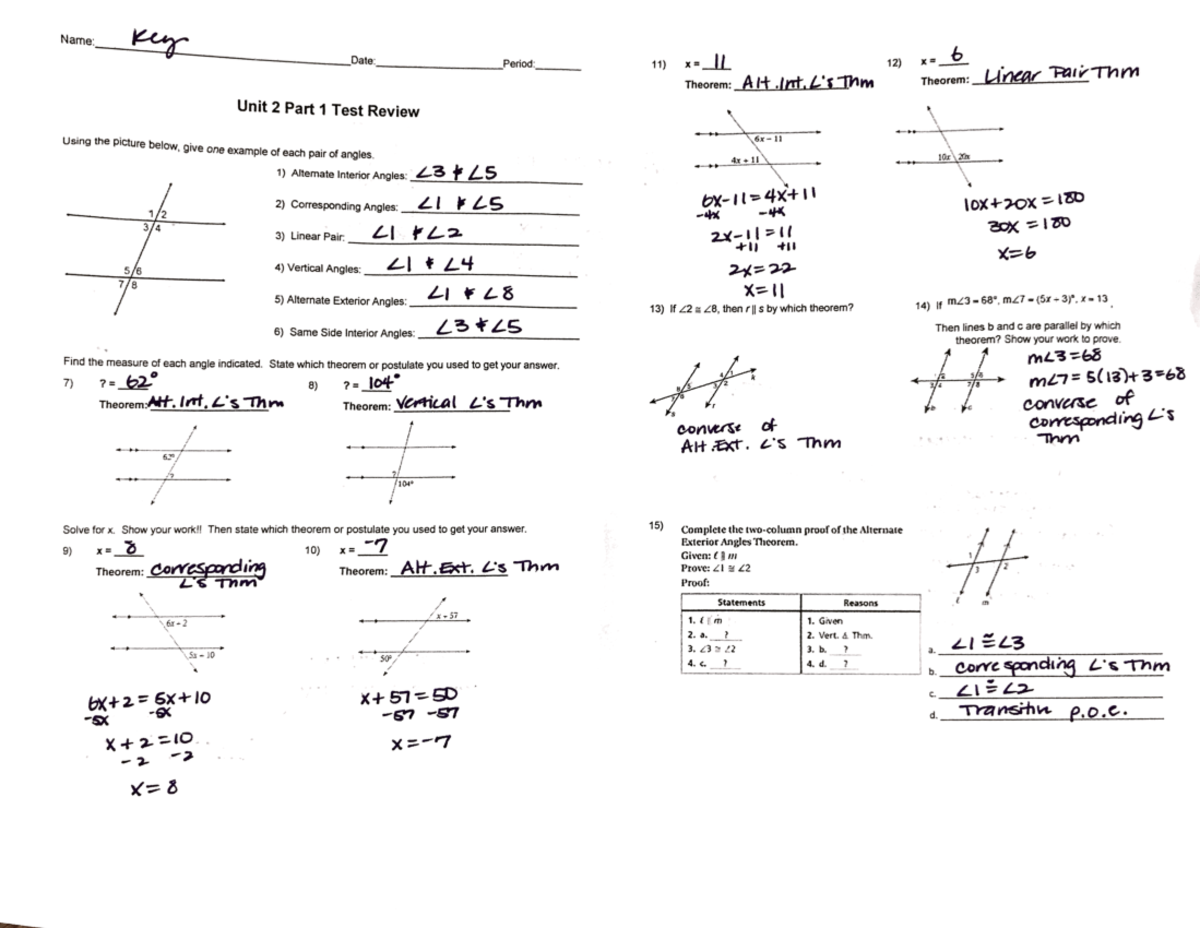 Name: Key
Date: Period:
Unit 2 Part 1 Test Review
Using the picture below, give one example of each pair of angles.
1) Alternate Interior Angles: ∠3 & ∠5
2) Corresponding Angles: ∠1 & ∠5
3) Linear Pair: ∠1 & ∠2
4) Vertical Angles: ∠1 & ∠4
5) Alternate Exterior Angles: ∠1 & ∠8
6) Same Side Interior Angles: ∠3 & ∠5
1/2
3/4
5/6
7/8
Find the measure of each angle indicated. State which theorem or postulate you used to get your answer.
7) ? = 62°
Theorem: Alt. Int. ∠'s Thm
62°
?
8) ? = 104°
Theorem: Vertical ∠'s Thm
?
104°
Solve for x. Show your work!! Then state which theorem or postulate you used to get your answer.
9) x = 8
Theorem: Corresponding
∠'s Thm
6x - 2
5x - 10
6x+2 = 5x+10
-5x -5x
x+2=10
-2 -2
x= 8
10) x = -7
Theorem: Alt. Ext. ∠'s Thm
x + 57
50°
x+57=50
-57 -57
x=-7
11) x = 11
Theorem: Alt. Int. ∠'s Thm
6x - 11
4x + 11
6x-11=4x+11
-4x -4x
2x-11=11
+11 +11
2x=22
x=11
12) x = 6
Theorem: Linear Pair Thm
10x 20x
10x+20x=180
30x =180
x=6
13) If ∠2 ≅ ∠8, then r || s by which theorem?
s
r
converse of
Alt. Ext. ∠'s Thm
14) If m∠3 = 68°, m∠7 = (5x + 3)°, x = 13
Then lines b and c are parallel by which
theorem? Show your work to prove.
3/4 7/8
b c
m∠3=68
m∠7= 5(13)+3=68
converse of
corresponding ∠'s
Thm
15) Complete the two-column proof of the Alternate
Exterior Angles Theorem.
Given: ℓ || m
Prove: ∠1 ≅ ∠2
Proof:
Statements Reasons
1. ℓ || m 1. Given
2. a. ? 2. Vert. ∠s Thm.
3. ∠3 ≅ ∠2 3. b. ?
4. c. ? 4. d. ?
1
3 2
ℓ m
a. ∠1 ≅ ∠3
b. corresponding ∠'s Thm
c. ∠1 ≅ ∠2
d. P.O.C.